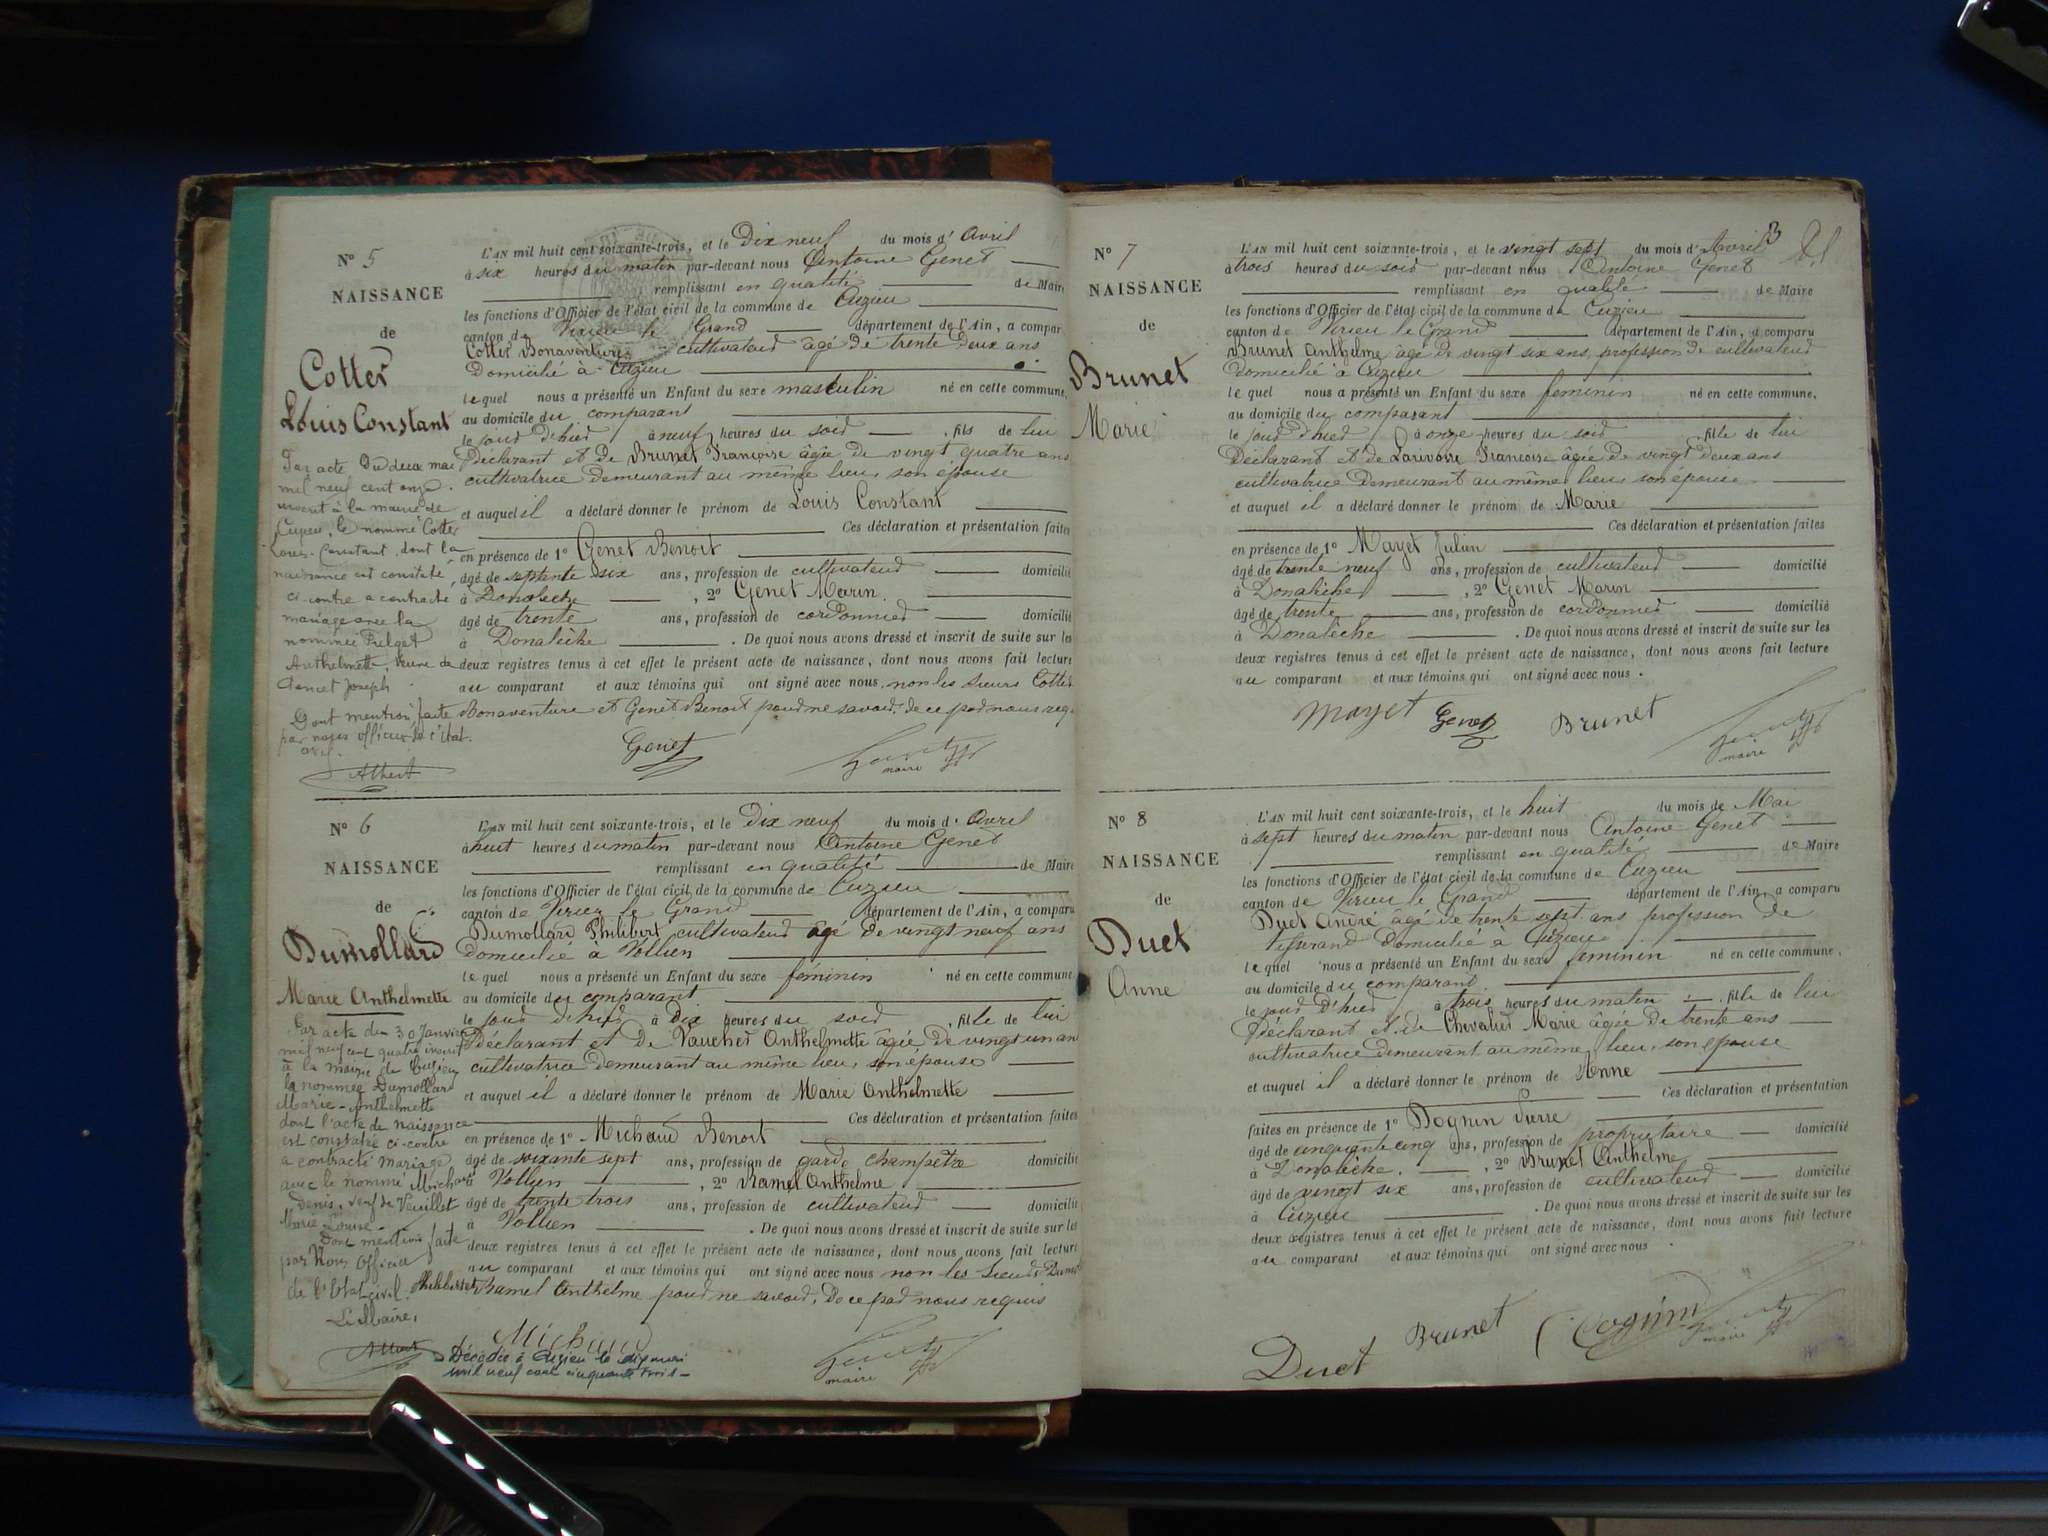 N° 5
NAISSANCE
de
Cotter
Louis Constant
Par acte du deux mai
mil neuf cent onze
inscrit à la mairie de
Cuzieu, le nommé Cotter
Louis-Constant, dont la
naissance est constatée
ci-contre a contracté
mariage avec la
nommée
Anthelmette, veuve de
Joseph
Dont mention faite
par nous officier de l'état
civil.
L'AN mil huit cent soixante-trois, et le Dix neuf du mois d' Avril
à six heures du matin par-devant nous Antoine Genet
remplissant en qualité de Maire
les fonctions d'Officier de l'état civil de la commune de Cuzieu
canton de Virieu le Grand département de l'Ain, a compar
Cotter Bonaventure cultivateur âgé de trente deux ans
Domicilié à Cuzieu
lequel nous a présenté un Enfant du sexe masculin né en cette commune,
au domicile du comparant
le jour d'hier à neuf heures du soir , fils de lui
Déclarant et de Brunet Françoise âgée de vingt quatre ans
cultivatrice demeurant au même lieu, son épouse
et auquel il a déclaré donner le prénom de Louis Constant
Ces déclaration et présentation faites
en présence de 1° Genet Benoit
âgé de septente six ans, profession de cultivateur domicilié
à Donalèche , 2° Genet Marin
âgé de trente ans, profession de cordonnier domicilié
à Donalèche . De quoi nous avons dressé et inscrit de suite sur les
deux registres tenus à cet effet le présent acte de naissance, dont nous avons fait lecture
au comparant et aux témoins qui ont signé avec nous, non les sieurs Cotter
Bonaventure et Genet Benoit pour ne savoir, de ce par nous req
Genet
maire
N° 6
NAISSANCE
de
Dumollard
Marie Anthelmette
Par acte du 30 Janvier
mil neuf cent quatre inscrit
à la mairie de Cuzieu
la nommée Dumollard
Marie-Anthelmette
dont l'acte de naissance
est constaté ci-contre
a contracté mariage
avec le nommé Michaud
Denis, veuf de Veuillet
Marie-Louise
Dont mention faite
par Nous Officier
de l'Etat-civil.
Le Maire,
L'AN mil huit cent soixante-trois, et le Dix neuf du mois d' Avril
à huit heures du matin par-devant nous Antoine Genet
remplissant en qualité de Maire
les fonctions d'Officier de l'état civil de la commune de Cuzieu
canton de Virieu le Grand département de l'Ain, a comparu
Dumollard Philibert cultivateur âgé de vingt neuf ans
Domicilié à Vollien
lequel nous a présenté un Enfant du sexe féminin né en cette commune
au domicile du comparant
le jour d'hier à Dix heures du soir , fille de lui
Déclarant et de Vaucher Anthelmette âgée de vingt un ans
cultivatrice demeurant au même lieu, son épouse
et auquel il a déclaré donner le prénom de Marie Anthelmette
Ces déclaration et présentation faites
en présence de 1° Michaud Benoit
âgé de soixante sept ans, profession de garde champêtre domicilié
à Vollien , 2° Ramel Anthelme
âgé de trente trois ans, profession de cultivateur domicilié
à Vollien . De quoi nous avons dressé et inscrit de suite sur les
deux registres tenus à cet effet le présent acte de naissance, dont nous avons fait lecture
au comparant et aux témoins qui ont signé avec nous non les sieurs Dumo
Philibert et Ramel Anthelme pour ne savoir, de ce par nous requis
Michaud
maire
Décédée à Cuzieu le dix mai
mil neuf cent cinquante trois
3
N° 7
NAISSANCE
de
Brunet
Marie
L'AN mil huit cent soixante-trois, et le vingt sept du mois d' Avril
à trois heures du soir par-devant nous Antoine Genet
remplissant en qualité de Maire
les fonctions d'Officier de l'état civil de la commune de Cuzieu
canton de Virieu le Grand département de l'Ain, a comparu
Brunet Anthelme âgé de vingt six ans, profession de cultivateur
domicilié à Cuzieu
lequel nous a présenté un Enfant du sexe féminin né en cette commune,
au domicile du comparant
le jour d'hier à onze heures du soir , fille de lui
Déclarant et de Larivoire Françoise âgée de vingt deux ans
cultivatrice demeurant au même lieu, son épouse
et auquel il a déclaré donner le prénom de Marie
Ces déclaration et présentation faites
en présence de 1° Mayet Julien
âgé de trente neuf ans, profession de cultivateur domicilié
à Donalèche , 2° Genet Marin
âgé de trente ans, profession de cordonnier domicilié
à Donalèche . De quoi nous avons dressé et inscrit de suite sur les
deux registres tenus à cet effet le présent acte de naissance, dont nous avons fait lecture
au comparant et aux témoins qui ont signé avec nous.
Mayet Genet Brunet
maire
N° 8
NAISSANCE
de
Duet
Anne
L'AN mil huit cent soixante-trois, et le huit du mois de Mai
à sept heures du matin par-devant nous Antoine Genet
remplissant en qualité de Maire
les fonctions d'Officier de l'état civil de la commune de Cuzieu
canton de Virieu le Grand département de l'Ain, a comparu
Duet André âgé de trente sept ans profession de
tisserand domicilié à Cuzieu
lequel nous a présenté un Enfant du sexe féminin né en cette commune,
au domicile du comparant
le jour d'hier à trois heures du matin , fille de lui
Déclarant et de Chevalier Marie âgée de trente ans
cultivatrice demeurant au même lieu, son épouse
et auquel il a déclaré donner le prénom de Anne
Ces déclaration et présentation
faites en présence de 1° Dognin Pierre
âgé de cinquante cinq ans, profession de propriétaire domicilié
à Donalèche. , 2° Brunet Anthelme
âgé de vingt six ans, profession de cultivateur domicilié
à Cuzieu . De quoi nous avons dressé et inscrit de suite sur les
deux registres tenus à cet effet le présent acte de naissance, dont nous avons fait lecture
au comparant et aux témoins qui ont signé avec nous
Duet Brunet Dognin
maire